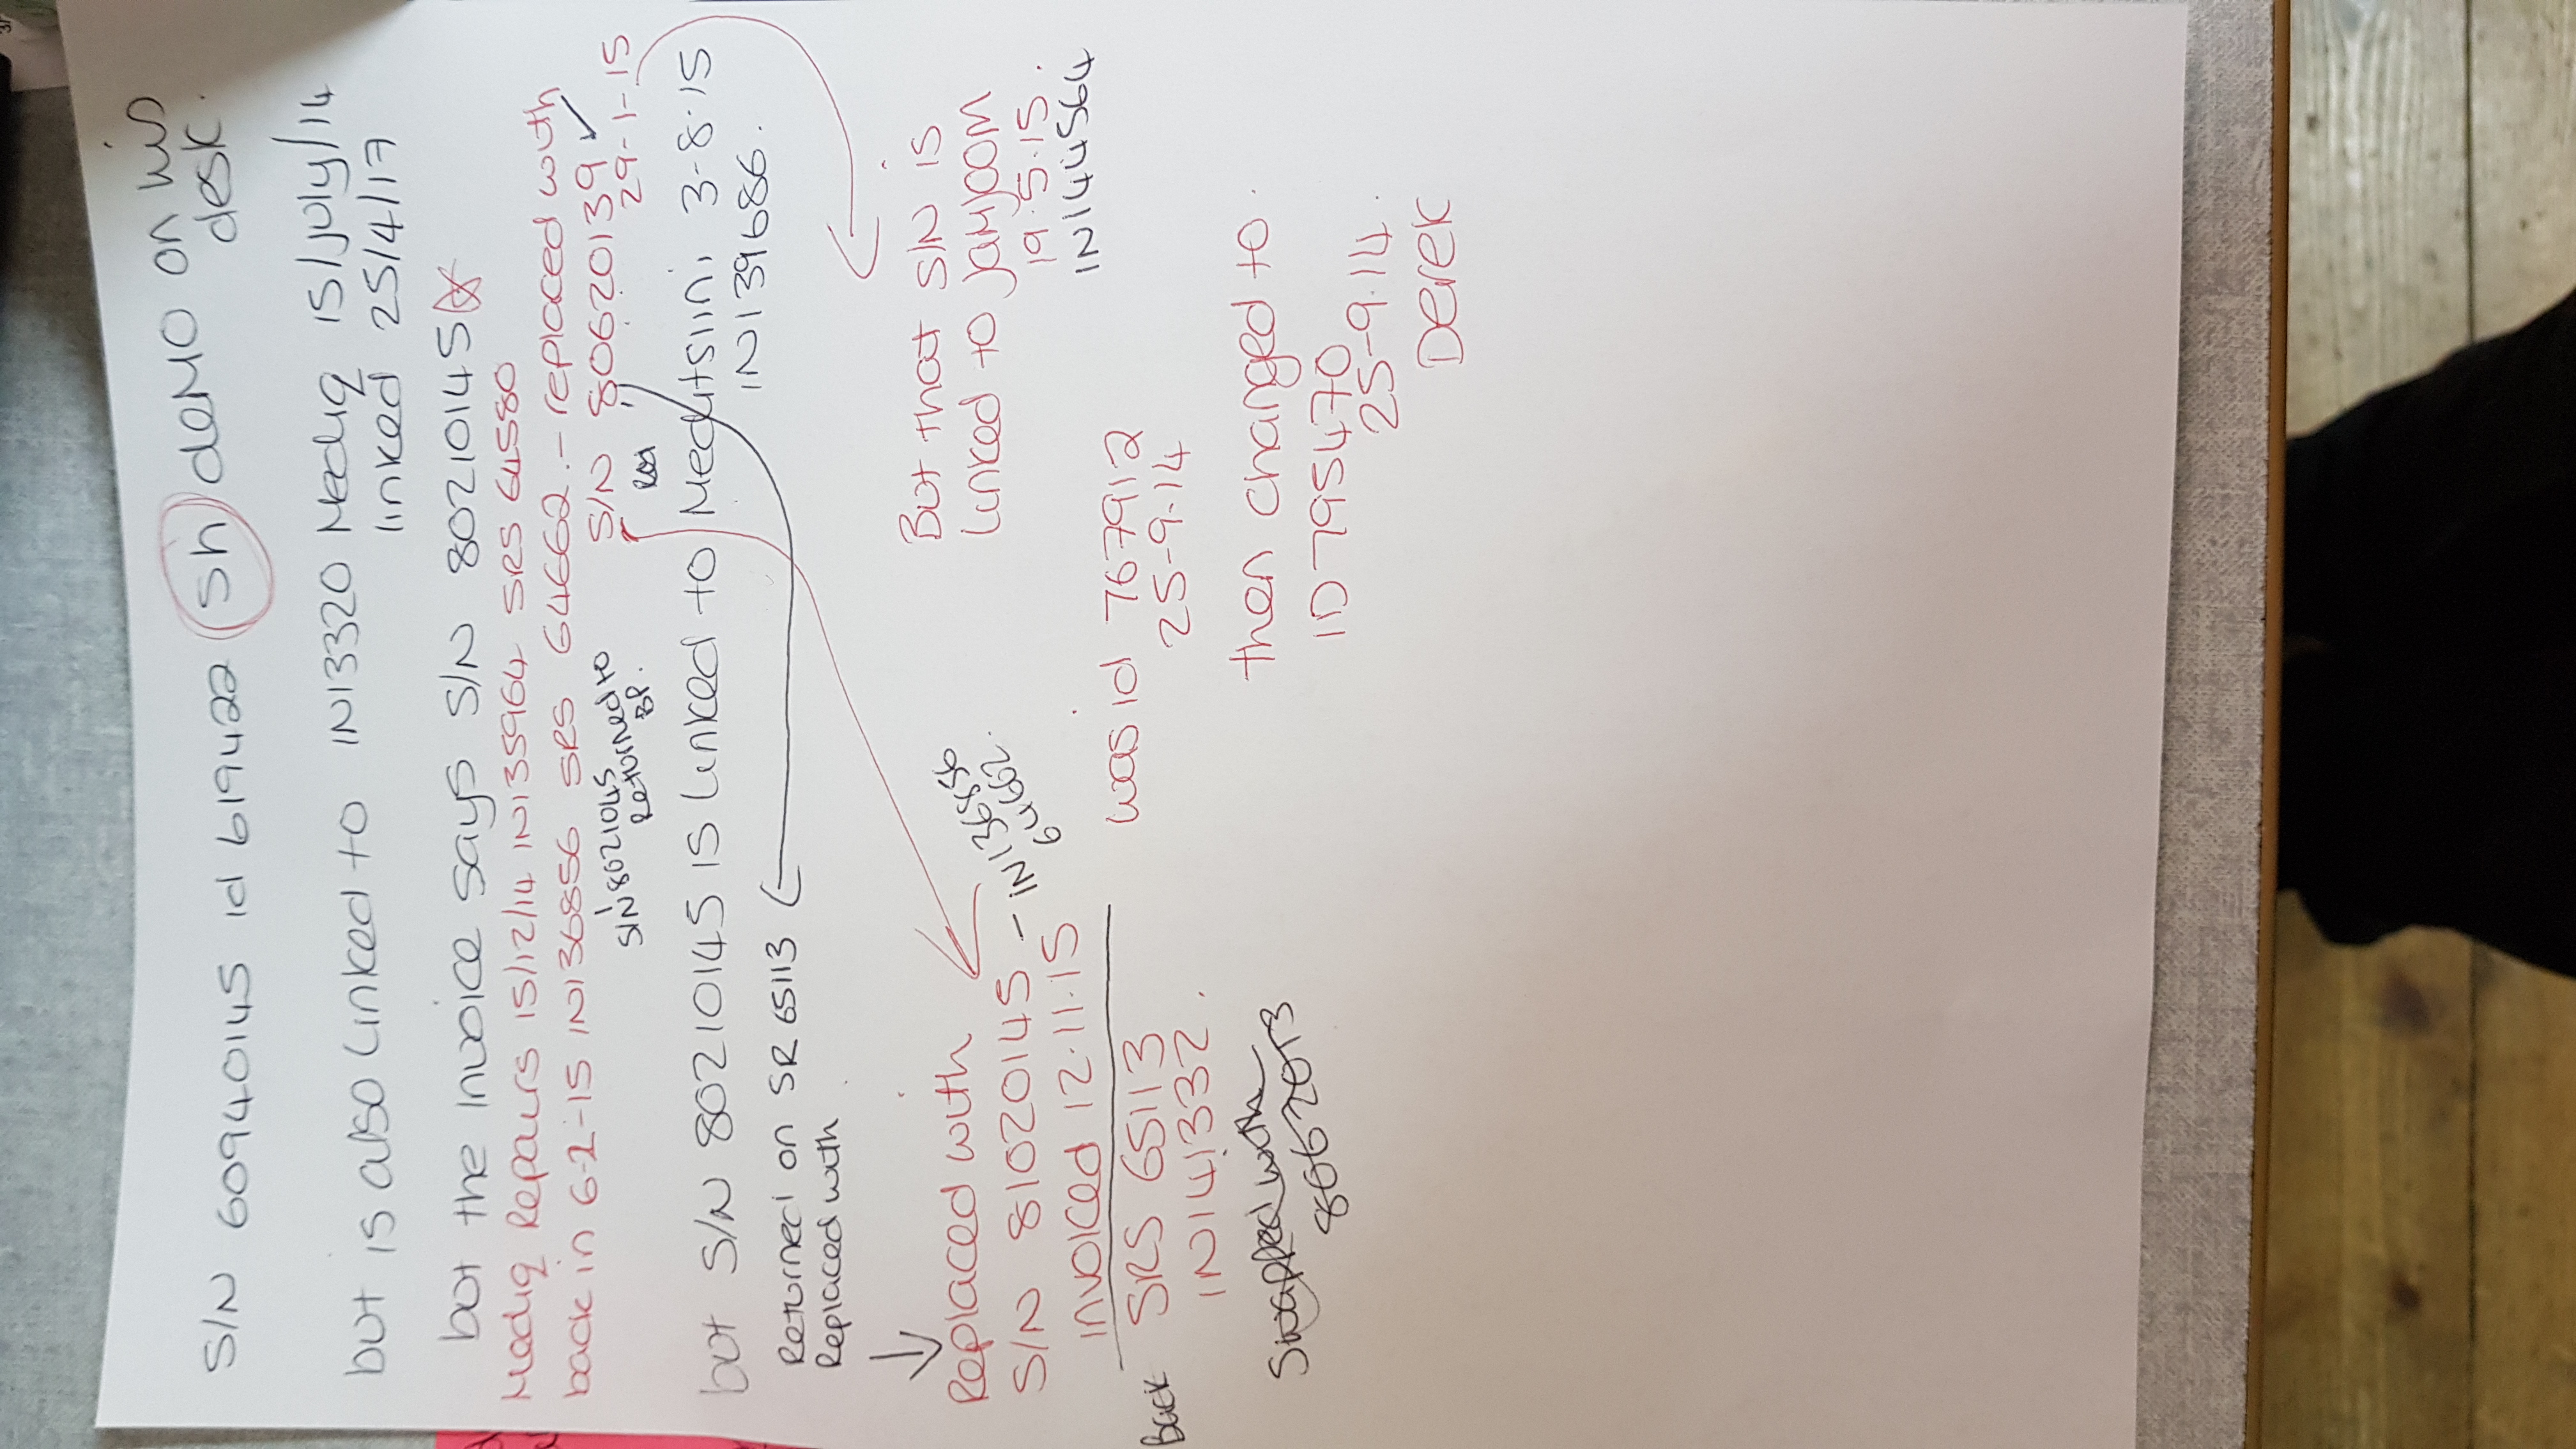 S/N 60940145 id 619422 (sh) demo on his
desk.
but is also linked to IN13320 Mediq 15/July/14
linked 25/4/17
but the invoice says S/N 80210145
Mediq Repairs 15/12/14 IN135964 SRS 64580
back in 6-2-15 IN136856 SRS 64662 - replaced with
S/N 80620139 ✓
29-1-15
S/N 80210145
Returned to
BP.
but S/N 80210145 is linked to 3-8-15
IN139686.
Returned on SR 65113
Replaced with
But that S/N is
linked to
19.5.15.
IN144564
Replaced with
S/N 81020145 - IN136856
64662.
invoiced 12.11.15
was id 767912
25-9-14
back SRS 65113
IN141332.
then changed to.
ID 795470
25-9.14.
Derek
Swapped with